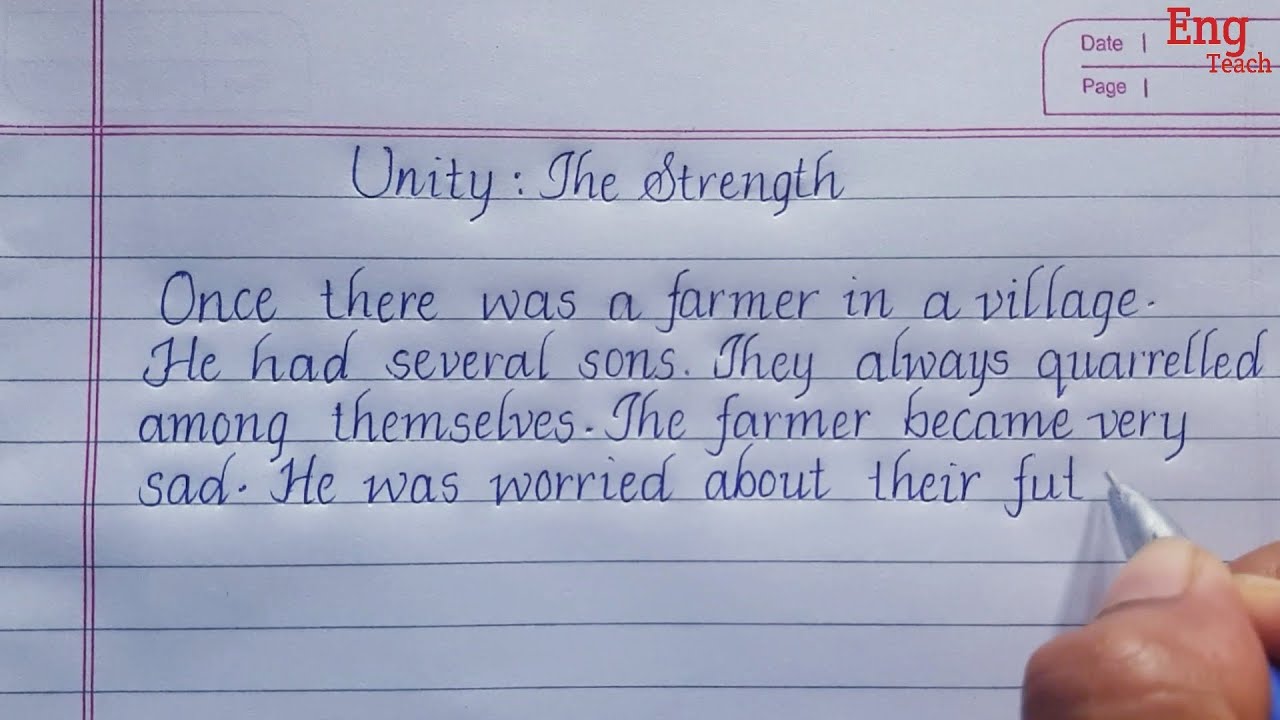 Eng
Teach
Date |
Page |
Unity : The Strength
Once there was a farmer in a village.
He had several sons. They always quarrelled
among themselves. The farmer became very
sad. He was worried about their fut